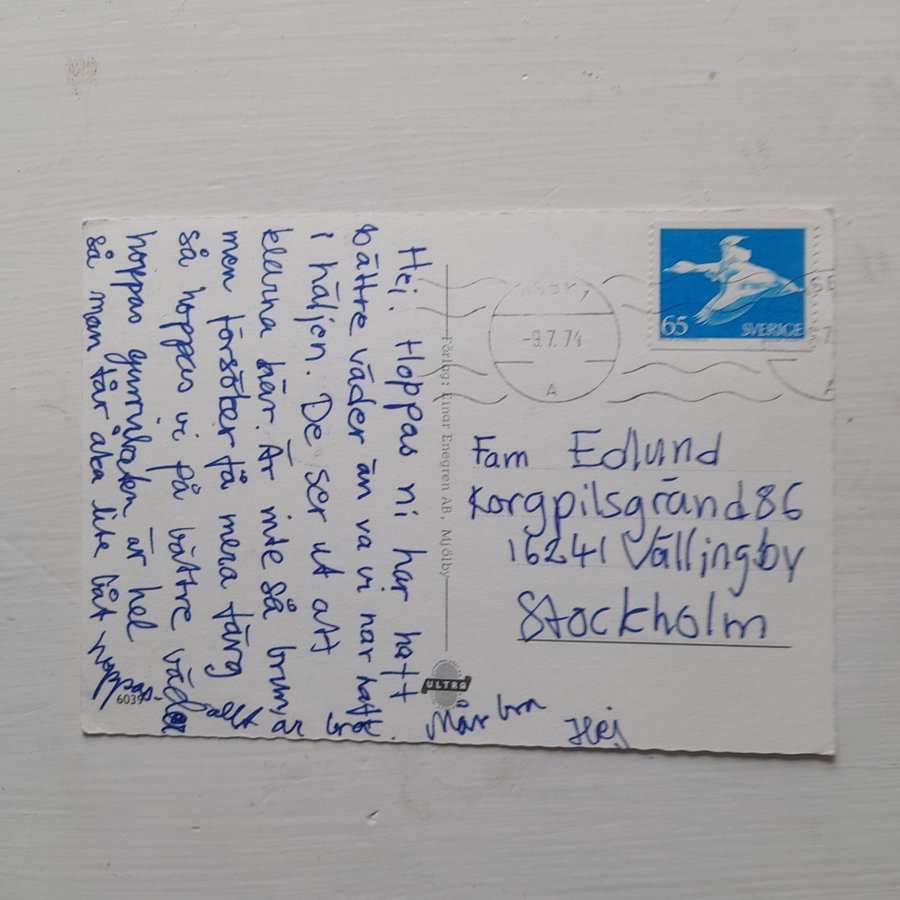 Hej. Hoppas ni har haft
bättre väder än va vi har haft
i häljen. De ser ut att
klarna här. Är inte så bruna
men försöker få mera färg
så hoppas vi på bättre väder
hoppas gummibåten är hel
så man får åka lite båt hoppas
allt är bra.
Mår bra
Hej
Förlag: Einar Enegren AB, Mjölby
ULTRA
6039
-9.7.74
A
65 SVERIGE
Fam Edlund
Korgpilsgränd 86
16241 Vällingby
Stockholm